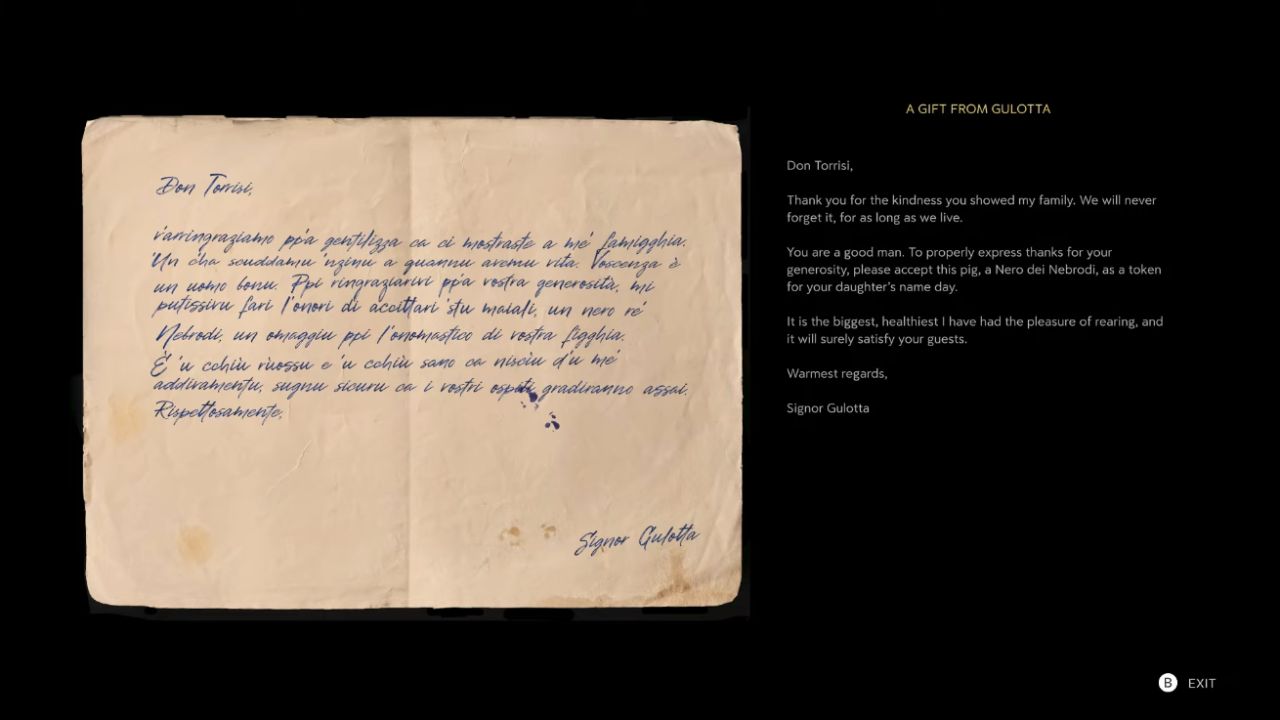 Don Torrisi,
v'arringraziamo pp'a gentilizza ca ci mostraste a mé famigghia.
'Un cha scuddamu 'nzinu a quannu avemu vita. Voscenza è
un uomo bonu. Ppi ringraziarivi pp'a vostra generosità, mi
putissivu fari l'onori di accittari 'stu maiali, un nero ré
Nebrodi, un omaggiu ppi l'onomastico di vostra figghia.
È 'u cchiù ruossu e 'u cchiù sano ca nisciu d'u mé
addivamentu, sugnu sicuru ca i vostri ospiti gradiranno assai.
Rispettosamente,
Signor Gulotta
A GIFT FROM GULOTTA
Don Torrisi,
Thank you for the kindness you showed my family. We will never
forget it, for as long as we live.
You are a good man. To properly express thanks for your
generosity, please accept this pig, a Nero dei Nebrodi, as a token
for your daughter's name day.
It is the biggest, healthiest I have had the pleasure of rearing, and
it will surely satisfy your guests.
Warmest regards,
Signor Gulotta
B EXIT